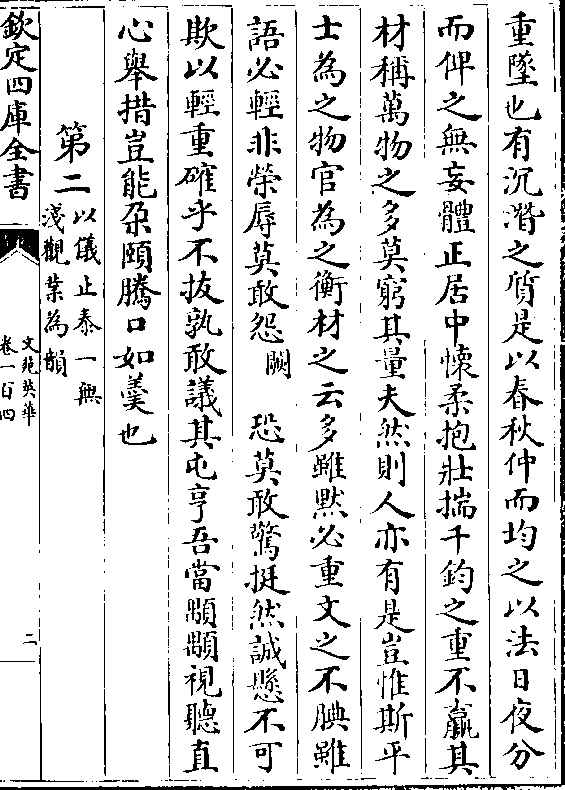 重墜也有沉潛之質是以春秋仲而均之以法日夜分
而俾之無妄體正居中懷柔抱壯揣千鈞之重不羸其
材稱萬物之多莫窮其量夫然則人亦有是豈惟斯平
士為之物官為之衡材之云多雖黙必重文之不腆雖
語必輕非榮辱莫敢怨闕 恐莫敢驚挺然誠懸不可
欺以輕重確乎不拔孰敢議其屯亨吾當顒顒視聽直
心舉措豈能朶頤騰口如羹也
第二以儀止泰一無
淺觀葉為韻
欽定四庫全書
文苑英華
卷一百四
二